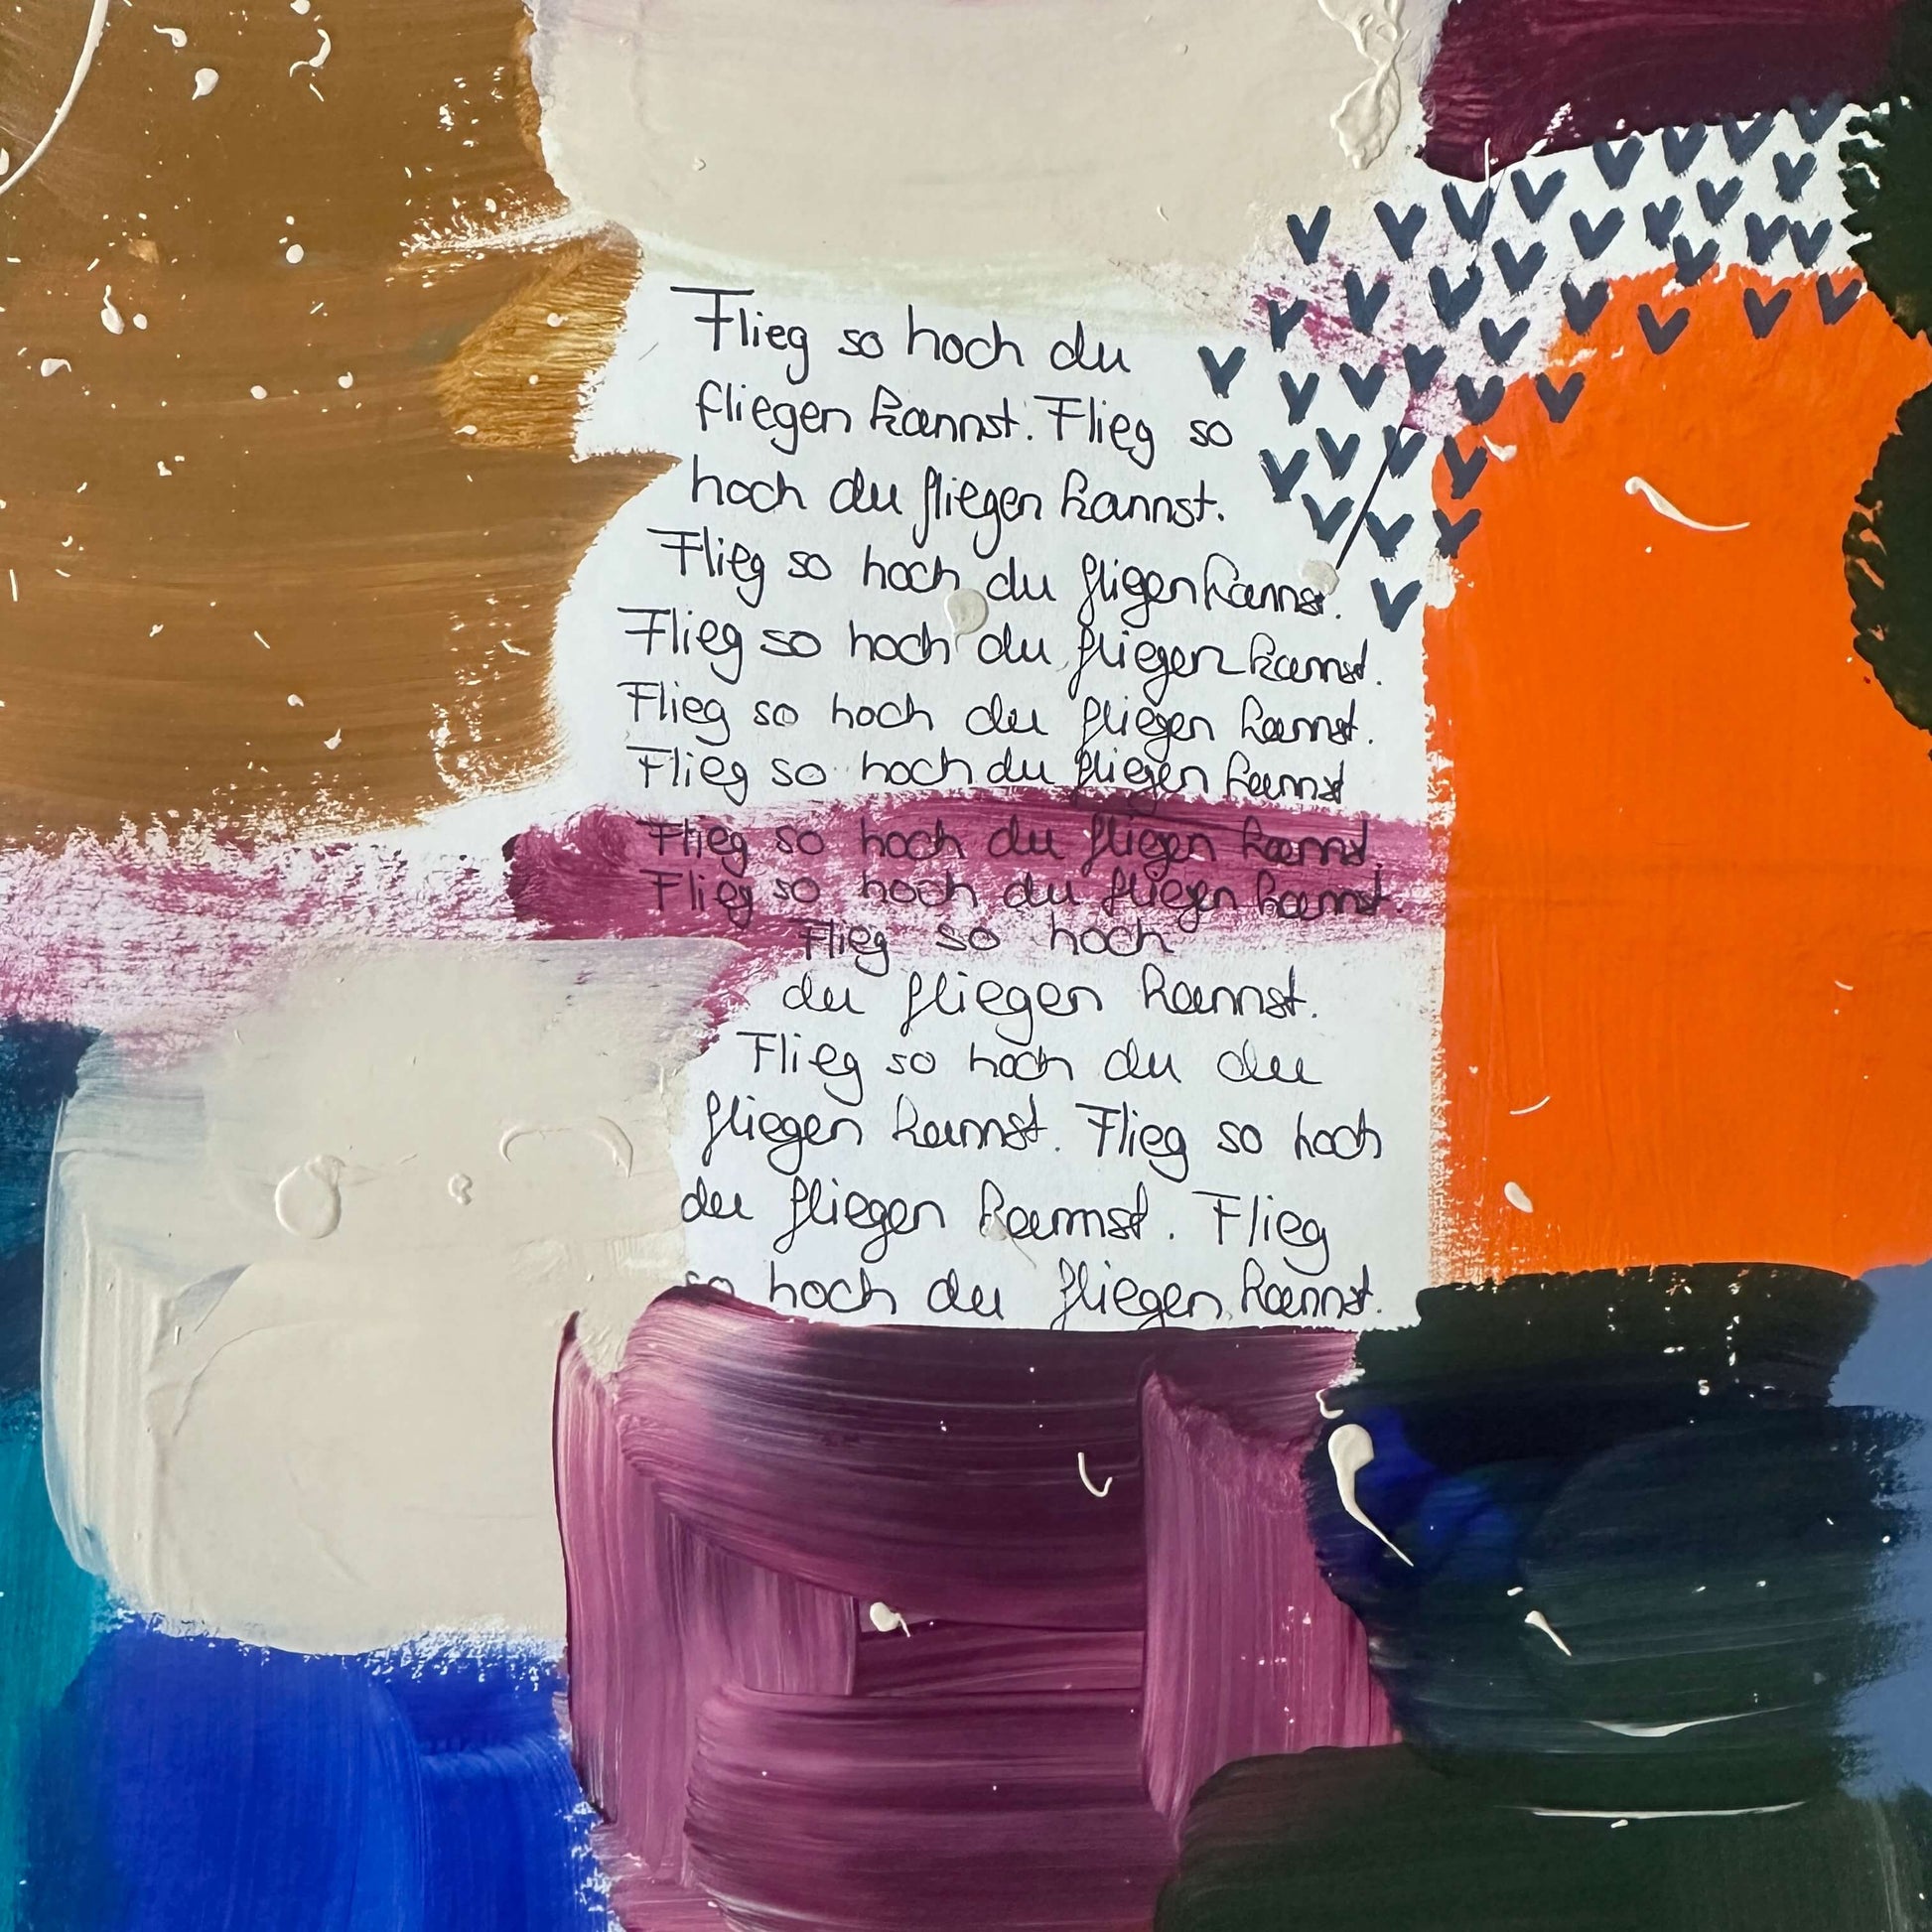 Flieg so hoch du
fliegen kannst. Flieg so
hoch du fliegen kannst.
Flieg so hoch du fligen kannst.
Flieg so hoch du fliegen kannst.
Flieg so hoch du fliegen kannst.
Flieg so hoch du fliegen kannst
Flieg so hoch du fliegen kannst.
Flieg so hoch du fliegen kannst.
Flieg so hoch
du fliegen kannst.
Flieg so hoch du du
fliegen kannst. Flieg so hoch
du fliegen kannst. Flieg
so hoch du fliegen kannst.